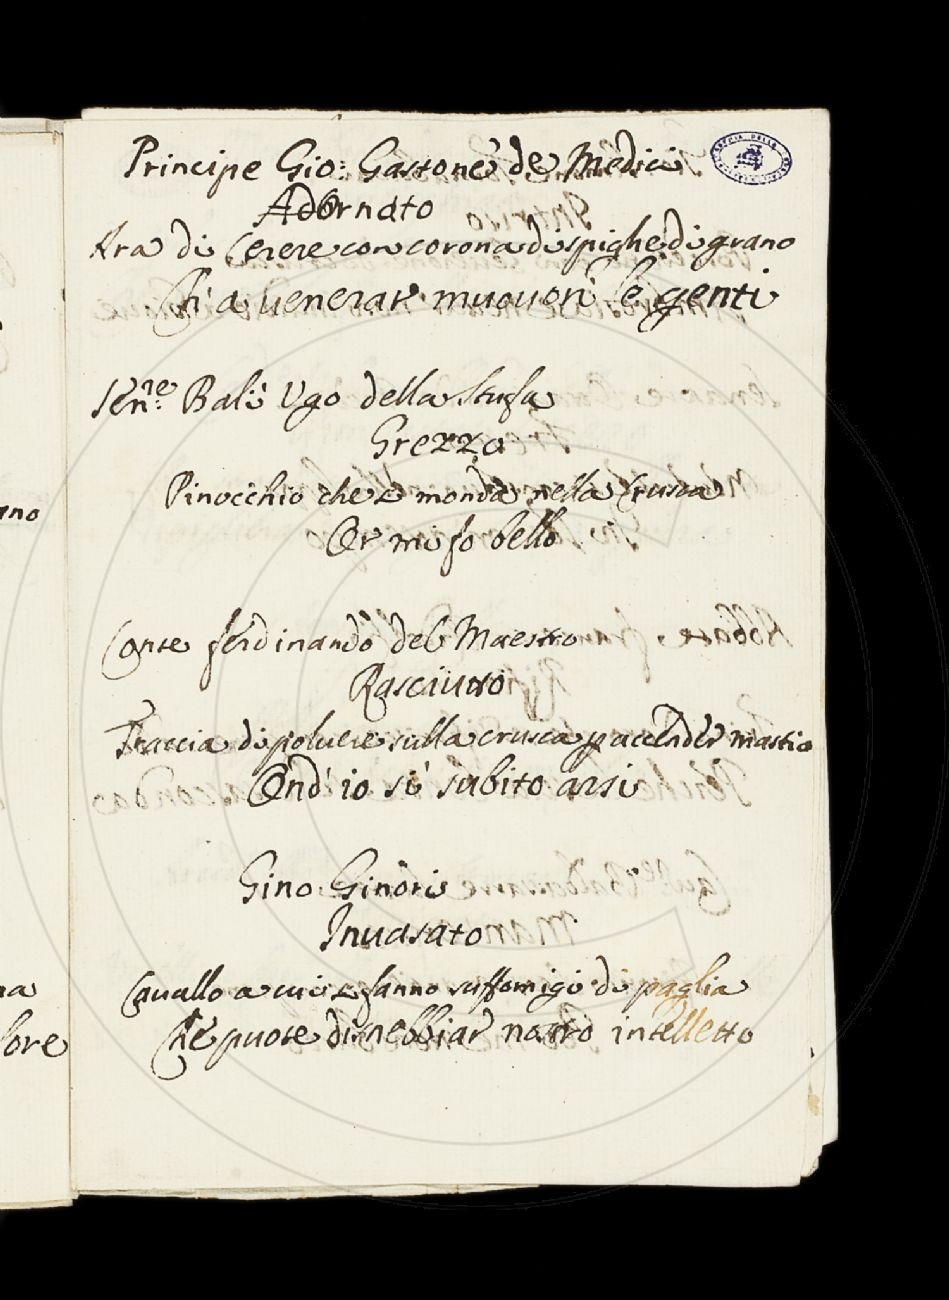 Principe Gio: Gastone de Medici
Adornato
Ara di Cerere con corona di spighe di grano
Ch' a venerar muovon le genti
Senre: Balì Ugo della Stufa
Grezzo
Pinocchio che si monda nella Crusca
Or mi fo bello
Conte Ferdinando del Maestro
Rasciutto
Traccia di polvere sulla crusca p accender mastio
Ond' io sì subito arsi
Gino Ginori
Invasato
Cavallo a cui si fanno suffomigi di paglia
Che puote disnebbiar nostro intelletto
ano
na
lore